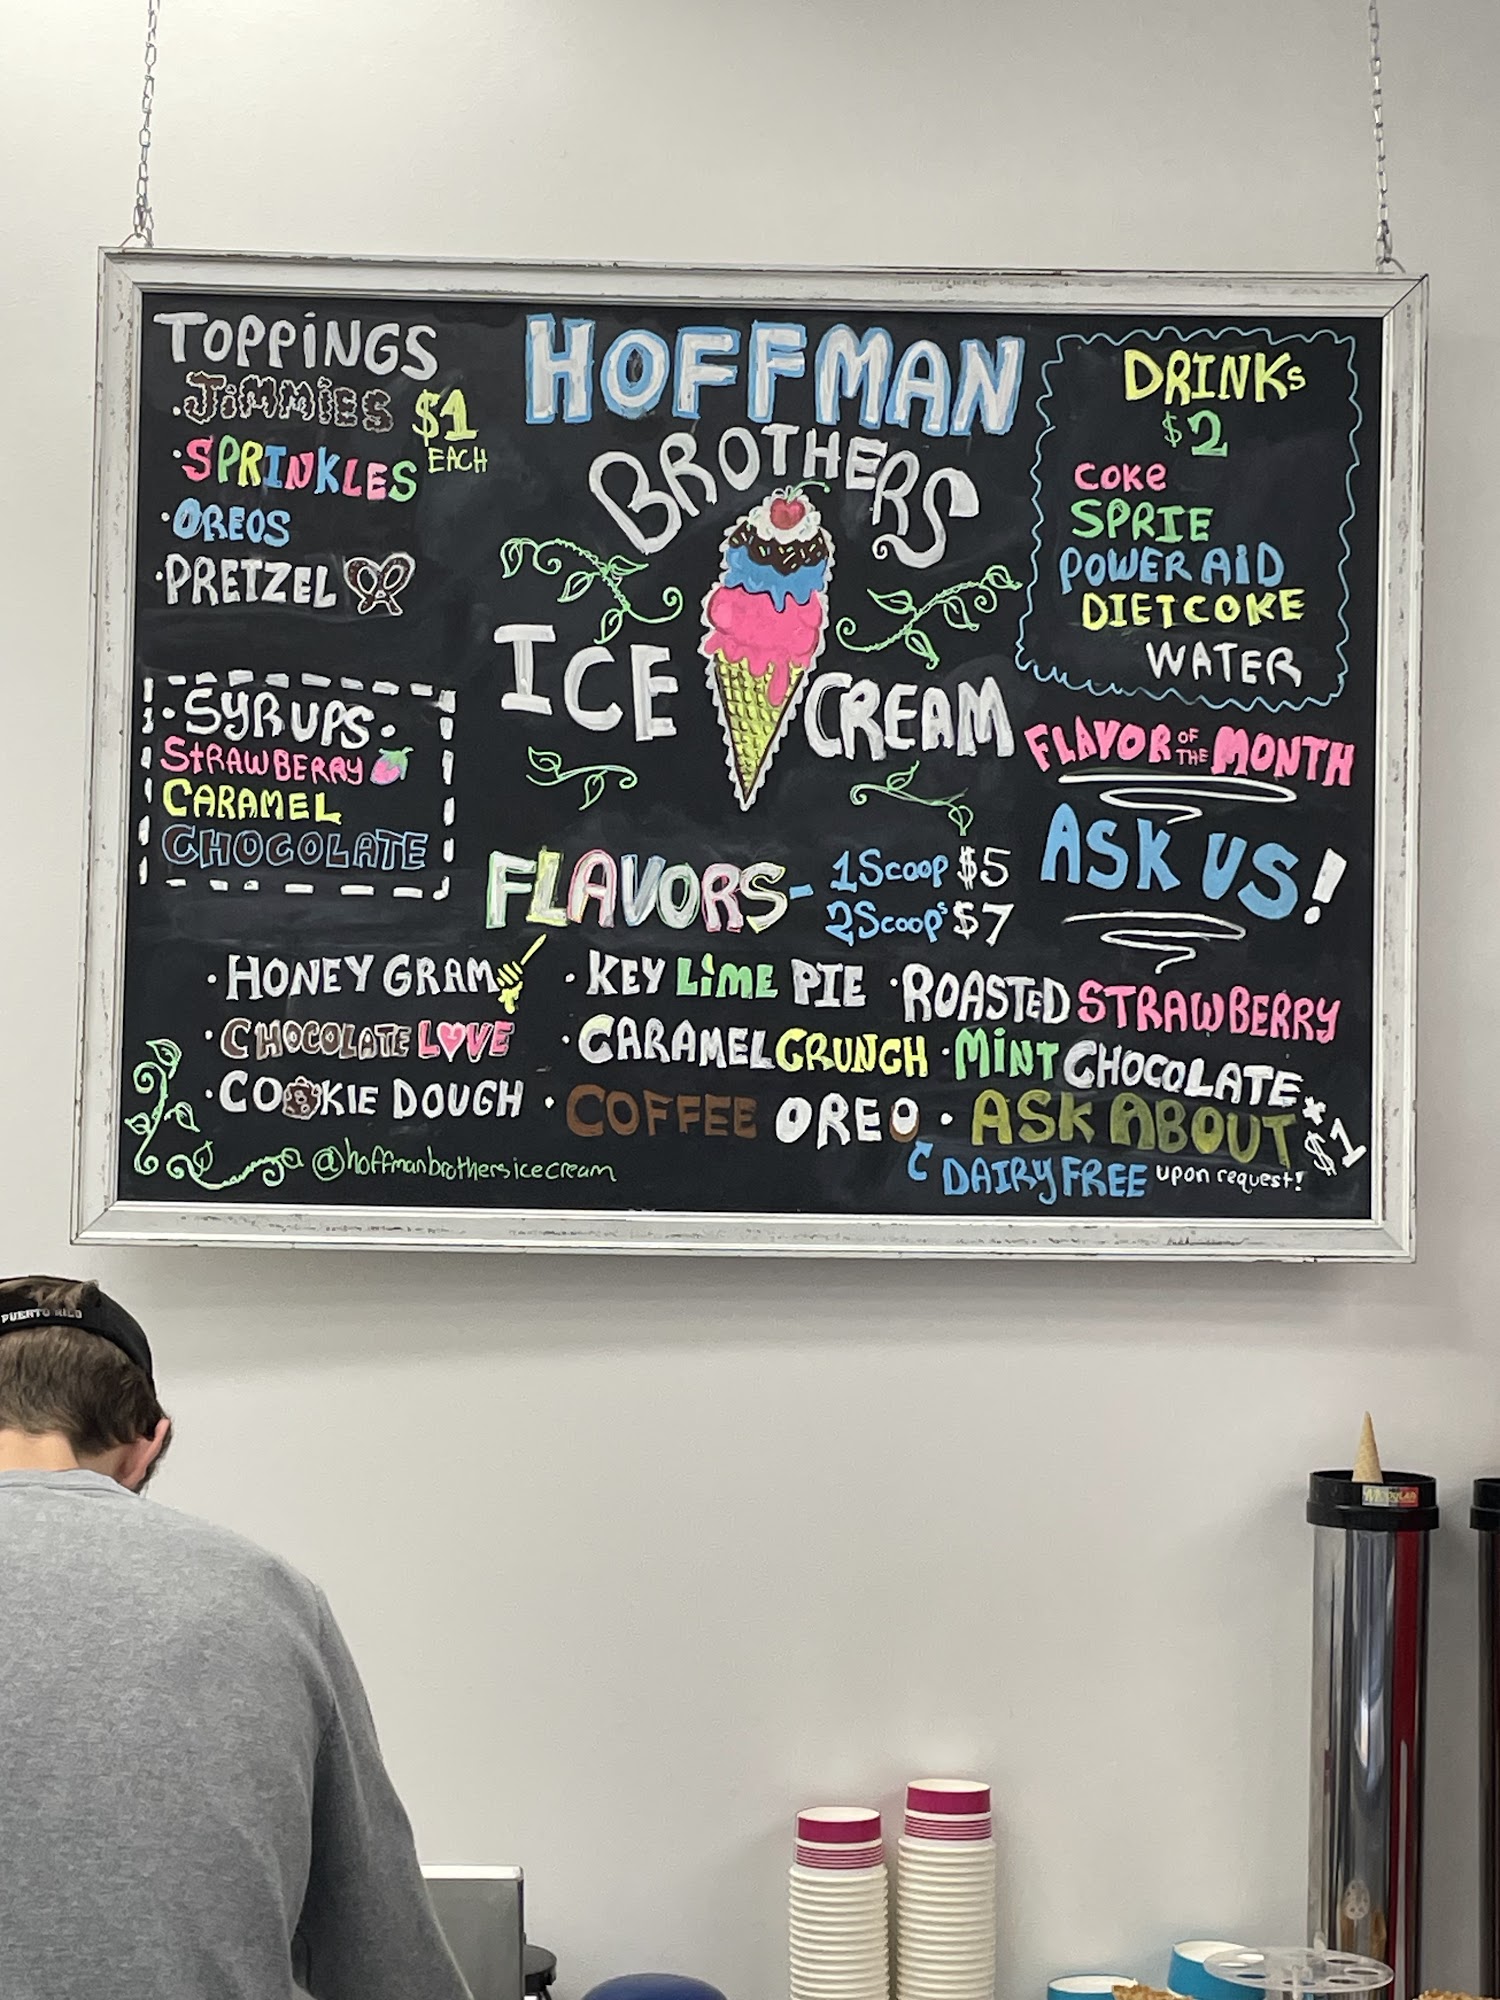 TOPPINGS
·JIMMIES $1
·SPRINKLES EACH
·OREOS
·PRETZEL
·SYRUPS·
STRAWBERRY
CARAMEL
CHOCOLATE
HOFFMAN
BROTHERS
ICE CREAM
DRINKs
$2
COKe
SPRIE
POWER AID
DIETCOKE
WATER
FLAVOR OF THE MONTH
ASK US!
FLAVORS- 1Scoop $5
2Scoop's $7
·HONEY GRAM ·KEY LIME PIE ·ROASTED STRAWBERRY
·CHOCOLATE LOVE ·CARAMEL CRUNCH ·MINT CHOCOLATE
·COOKIE DOUGH ·COFFEE OREO ·ASK ABOUT *$1
DAIRY FREE upon request!
@hoffmanbrothersicecream
PUERTO RICO